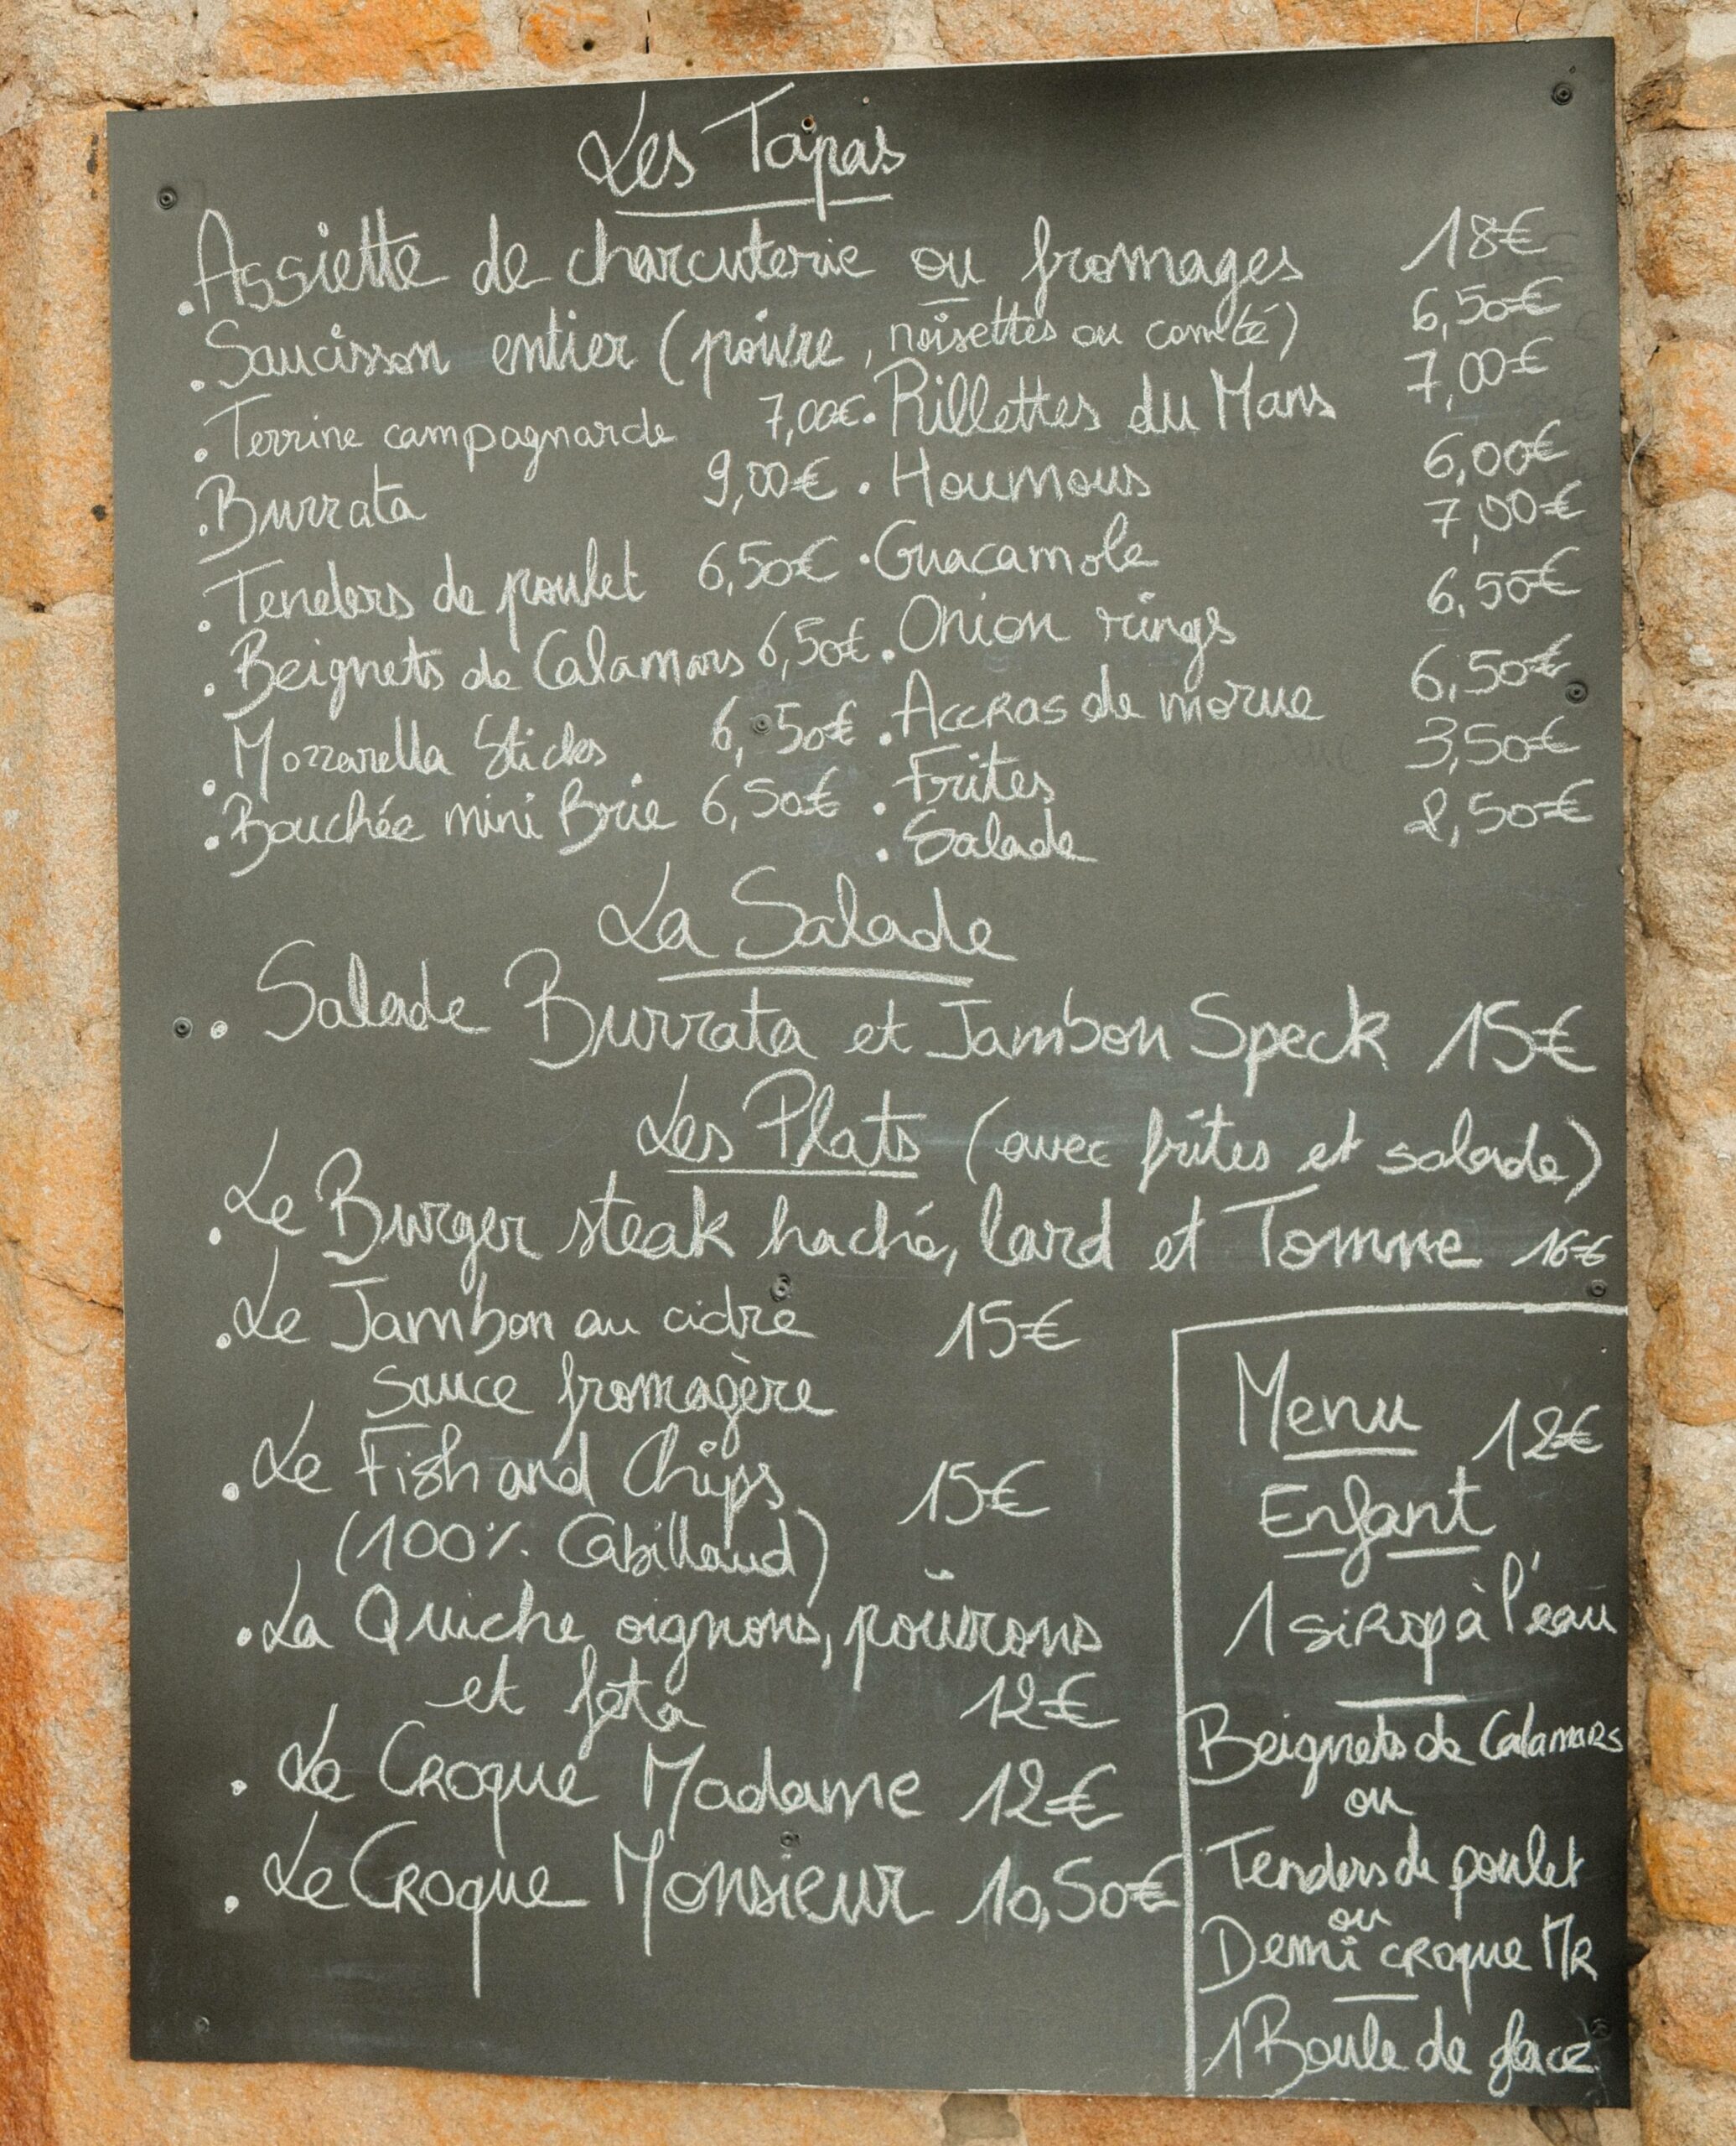 Les Tapas
. Assiette de charcuterie ou fromages 18€
. Saucisson entier (poivre, noisettes ou comté) 6,50€
. Terrine campagnarde 7,00€ . Rillettes du Mans 7,00€
. Burrata 9,00€ . Houmous 6,00€
. Tenders de poulet 6,50€ . Guacamole 7,00€
. Beignets de Calamars 6,50€ . Onion rings 6,50€
. Mozzarella Sticks 6,50€ . Accras de morue 6,50€
. Bouchée mini Brie 6,50€ . Frites 3,50€
. Salade 2,50€
La Salade
. Salade Burrata et Jambon Speck 15€
Les Plats (avec frites et salade)
. Le Burger steak haché, lard et Tomme 16€
. Le Jambon au cidre 15€
sauce fromagère
. Le Fish and Chips 15€
(100% Cabillaud)
. La Quiche oignons, poivrons
et feta 12€
. Le Croque Madame 12€
. Le Croque Monsieur 10,50€
Menu 12€
Enfant
1 sirop à l'eau
Beignets de Calamars
ou
Tenders de poulet
ou
Demi croque MR
1 Boule de glace